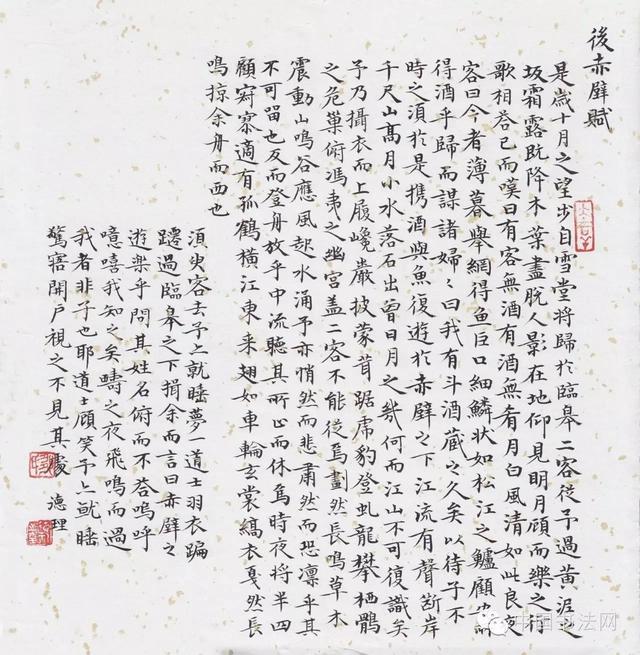 後赤壁賦
是歲十月之望步自雪堂將歸於臨皋二客從予過黃泥之
坂霜露既降木葉盡脫人影在地仰見明月顧而樂之行
歌相答已而嘆曰有客無酒有酒無肴月白風清如此良夜
客曰今者薄暮舉網得魚巨口細鱗狀如松江之鱸顧安所
得酒乎歸而謀諸婦〻曰我有斗酒藏之久矣以待子不
時之須於是携酒與魚復遊於赤壁之下江流有聲斷岸
千尺山高月小水落石出曾日月之幾何而江山不可復識矣
予乃攝衣而上履巉巖披蒙茸踞虎豹登虬龍攀栖鶻
之危巢俯馮夷之幽宮盖二客不能從焉劃然長鳴草木
震動山鳴谷應風起水涌予亦悄然而悲肅然而恐凛乎其
不可留也反而登舟放乎中流聽其所止而休焉時夜將半四
顧寂寥適有孤鶴橫江東来翅如車輪玄裳縞衣戛然長
鳴掠余舟而西也
須臾客去予亦就睡夢一道士羽衣蹁
躚過臨皋之下揖余而言曰赤壁之
遊樂乎問其姓名俯而不答嗚呼
噫嘻我知之矣疇之夜飛鳴而過
我者非子也耶道士顧笑予亦就睡
驚寤開户視之不見其處 德理
中国书法网